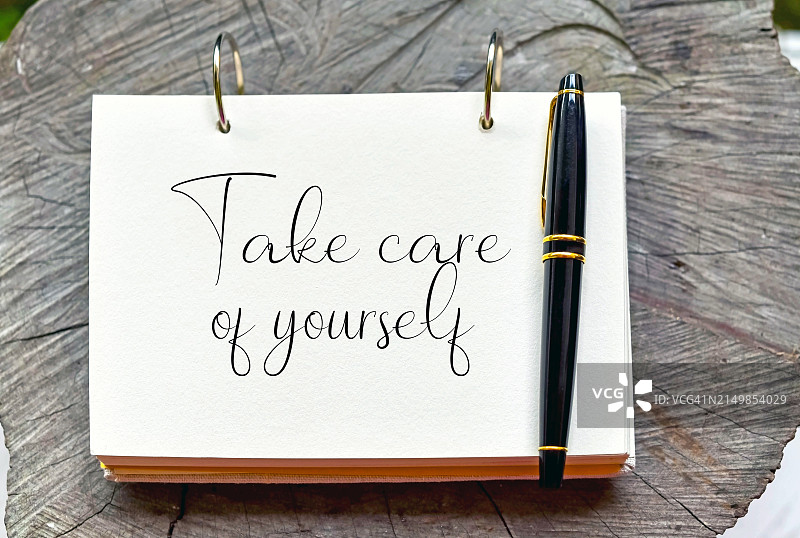 Take care
of yourself
VCG
ID: VCG41N2149854029